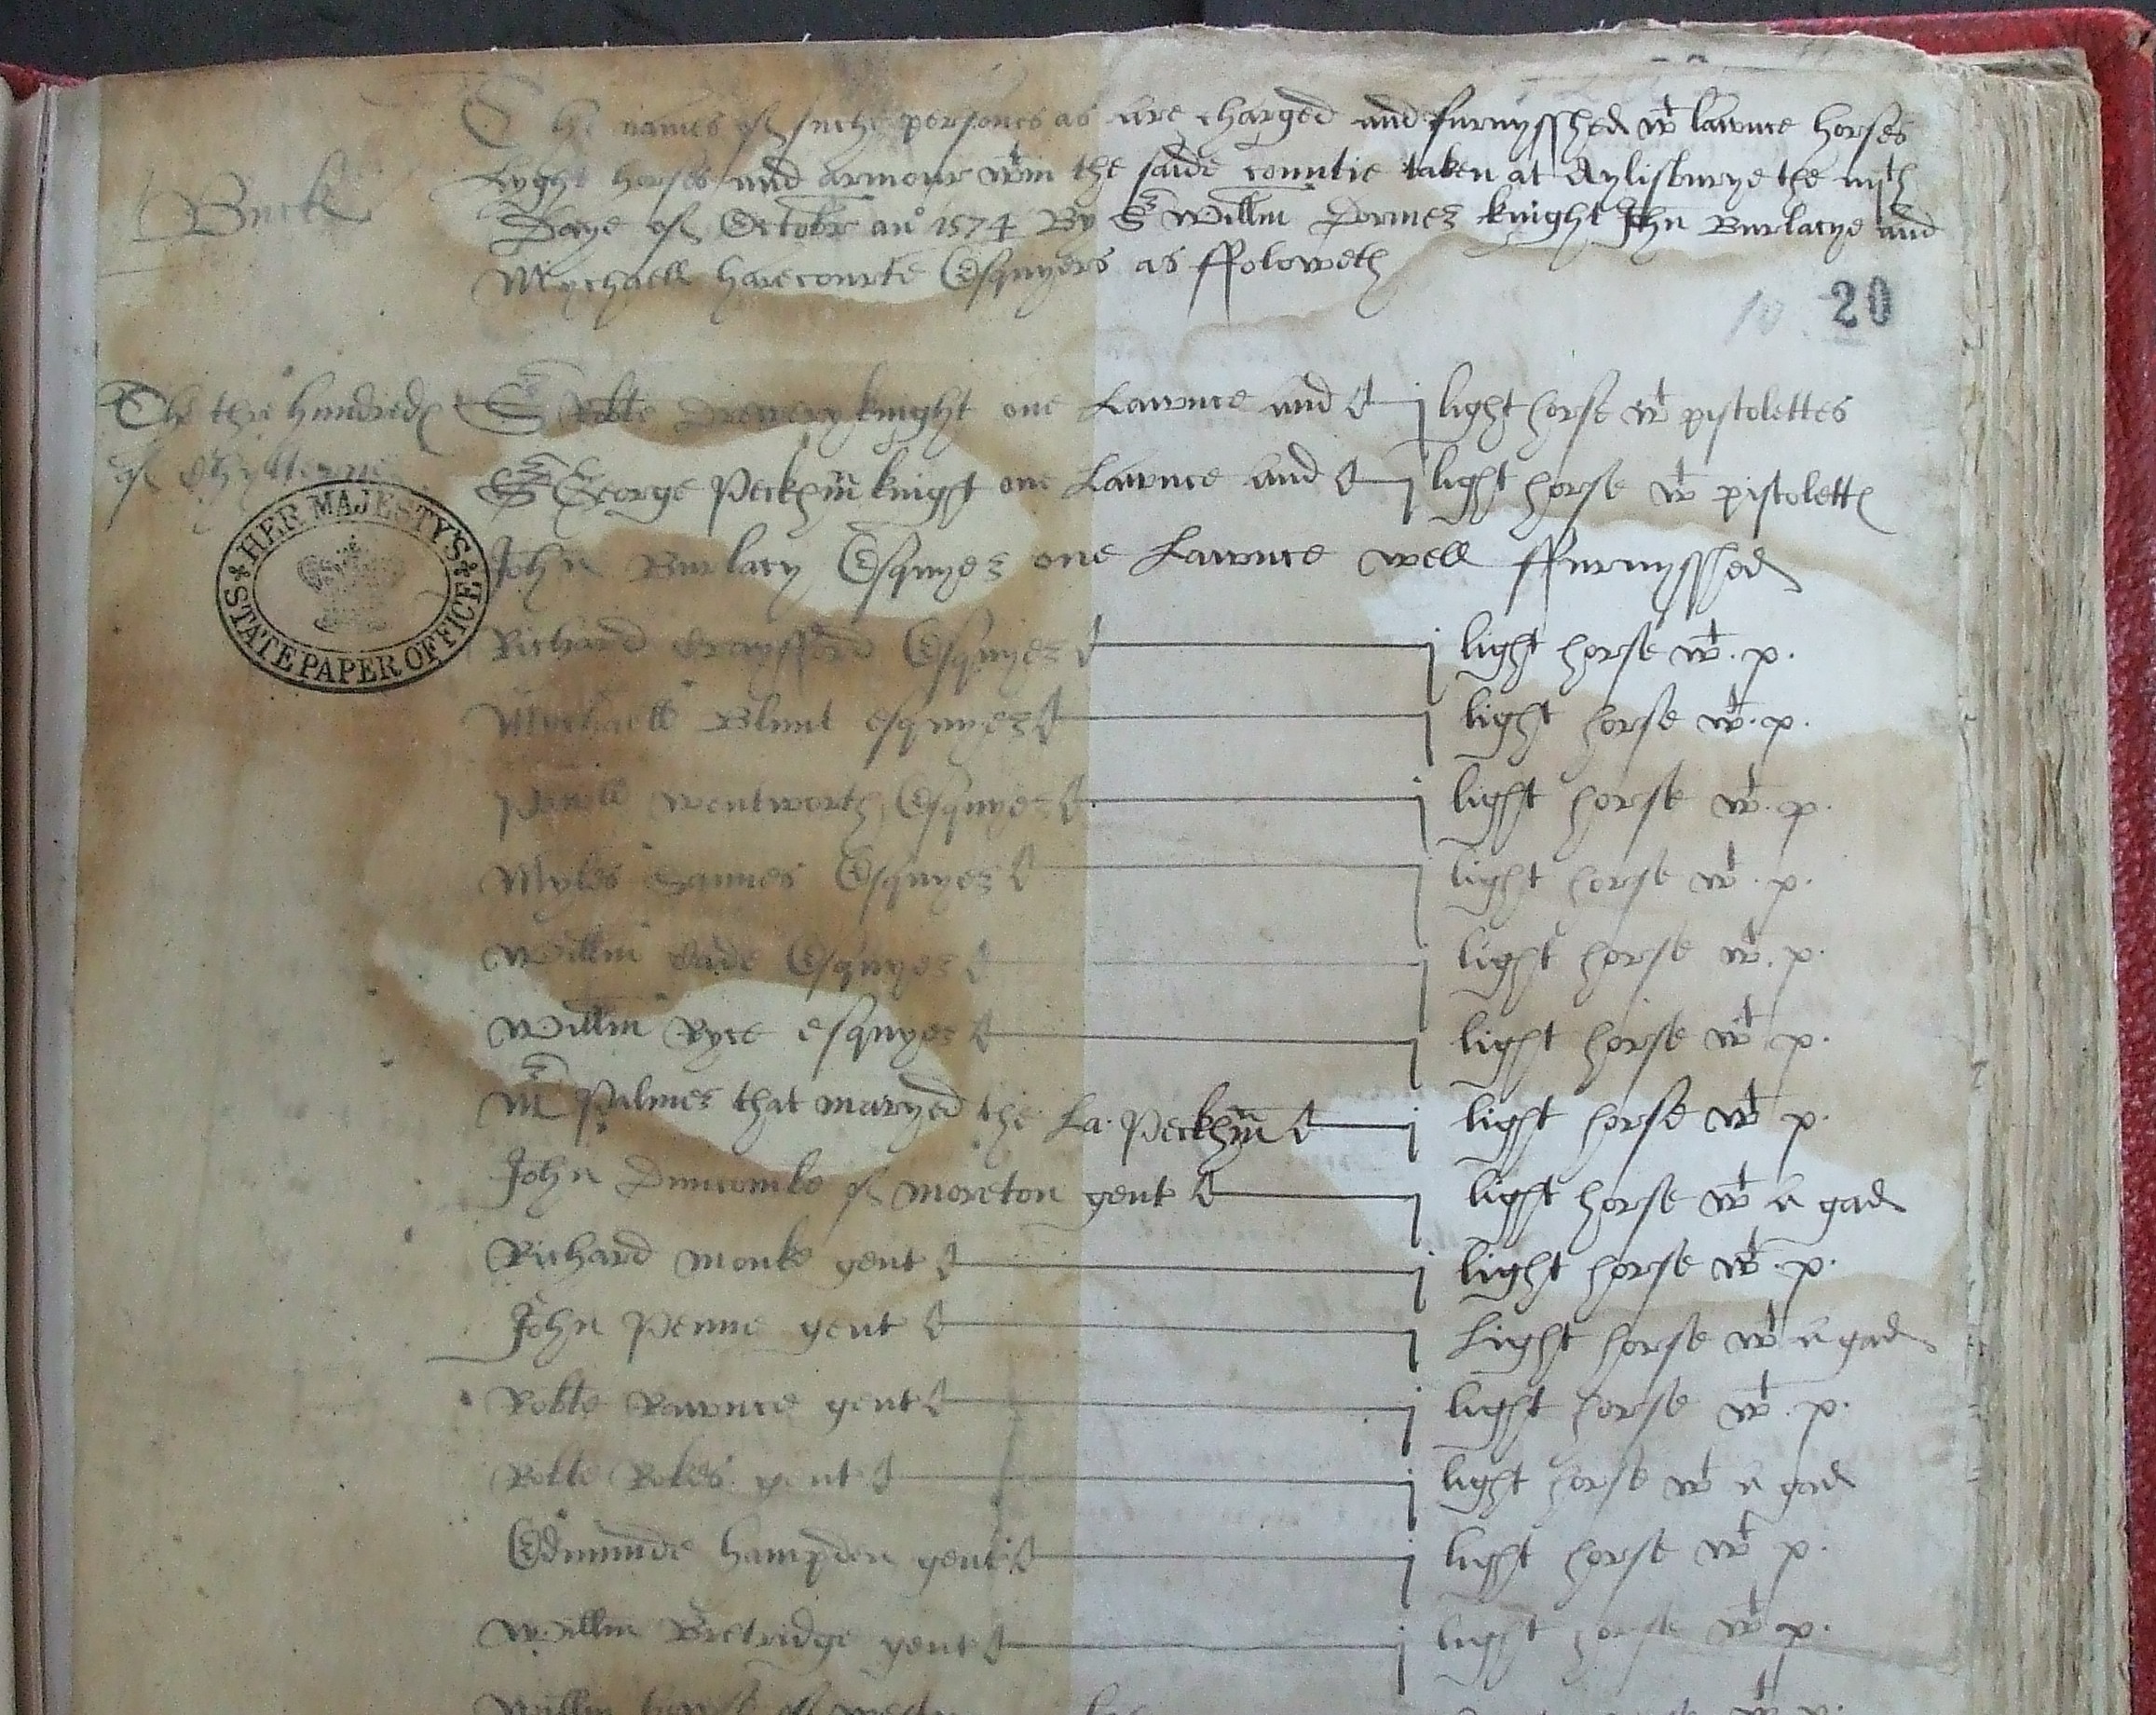 The names of suche persones as are charged and furnysshed wt lawnce horses
Lyght horses and armour wtin the saide countie taken at Aylisburye the
Buck
Daye of Octobr ano 1574 By Sr Willm Dormer knight John Burlacye and
Mychaell harecourte Esquyers as ffoloweth
10 20
The thre hundred Sr Robte Drewery knight one Lawnce and j light horse wt pistolettes
of Chylterne Sr George Peckhm knight one Lawnce and j light horse wt pistolett
HER MAJESTY'S STATE PAPER OFFICE
John Burlacy Esquyer one Lawnce well ffurnysshed
Richard Esquyer j light horse wt . p .
Mychaell Blunt esquyer j light horse wt . p .
Pawll wentworth Esquyer j light horse wt . p .
Myles Sannes Esquyer j light horse wt . p .
Willm Esquyer j light horse wt . p .
Willm Ryce esquyer j light horse wt p .
Mr Palmer that maryed the La . Peckhm j light horse wt p .
John Duncombe of moreton gent j light horse wt a gad
Richard monke gent j light horse wt . p .
John Penne gent j Light horse wt a gad
Robte Rawnce gent j light horse wt . p .
Robte Rokes gent j light horse wt a gad
Edmunde hampden gent j light horse wt p .
Willm Bretridge gent j light horse wt p .
Willm of